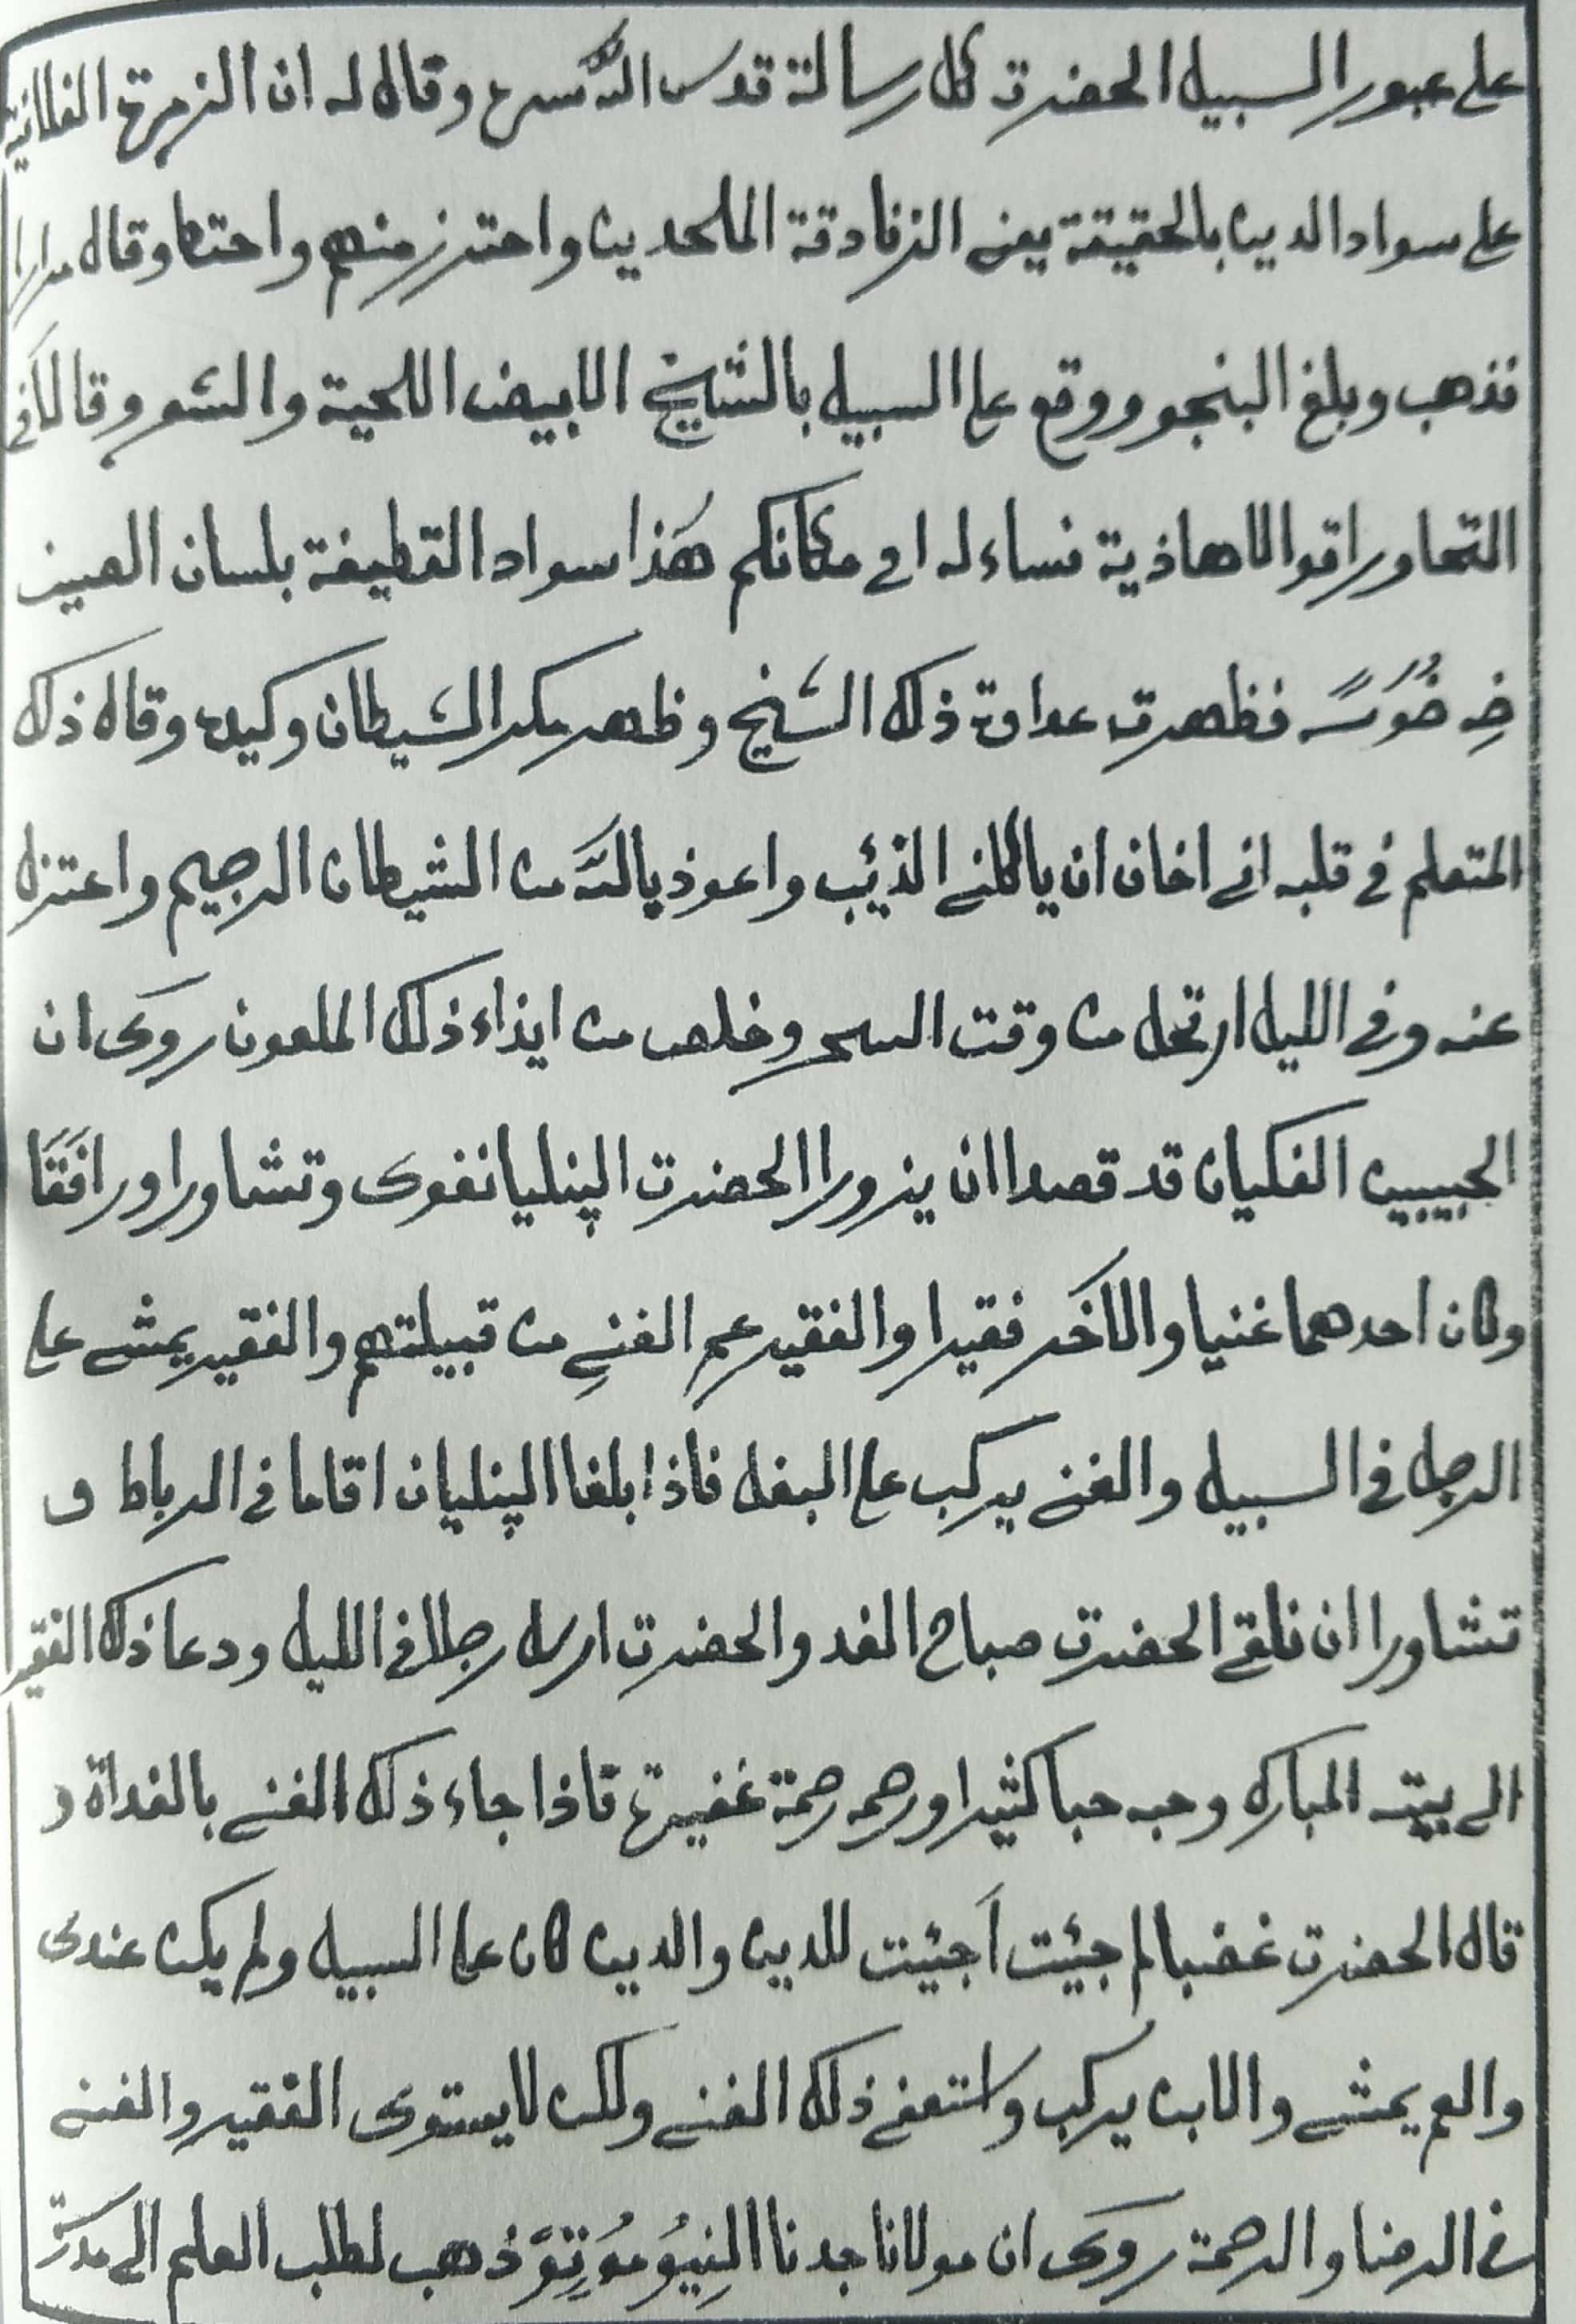 على عبور السبيل الحضرت كل رسالة قدس الله سره وقال له ان الزمرة الفلانية
على سواد الدين بالحقيقة يعني الزنادقة الملحدين واحترز منهم واحتط وقال مرارا
فذهب وبلغ البنجو ووقع على السبيل بالشيخ الابيض اللحية والشعر وقالا في
التحاور اقوالا هاذية فساءله اى مكانكم هذا سواد القطيفة بلسان الصين
فظهرت عداوة ذلك الشيخ وظهر مكر الشيطان وكيده وقال ذلك
المتعلم في قلبه اني اخاف ان ياكلني الذئب واعوذ بالله من الشيطان الرجيم واعتزل
عنه وفي الليل ارتحل من وقت السحر وخلص من ايذاء ذلك الملعون روى ان
الحبيبين الفكيان قد قصدا ان يزورا الحضرت الپنليانفوى وتشاورا ورافقا
وكان احدهما غنيا والاخر فقيرا والفقير عم الغني من قبيلتهم والفقير يمشي على
الرجل في السبيل والغني يركب على البغل فاذا بلغا الپنليان اقاما في الرباط و
تشاورا ان نلقي الحضرت صباح الغد والحضرت ارسل رجلا في الليل ودعا ذلك الفقير
الى بيته المبارك وحبه حبا كثيرا ورحمه رحمة غفيرة فاذا جاء ذلك الغني بالغداة و
قال الحضرت غضبا لم جئت أجئت للدين والدين كان على السبيل ولم يكن عندى
والعم يمشي والابن يركب واستعفى ذلك الغني ولكن لا يستوى الفقير والغني
في الرضا والرحمة روى ان مولانا جدنا ذهب لطلب العلم الى